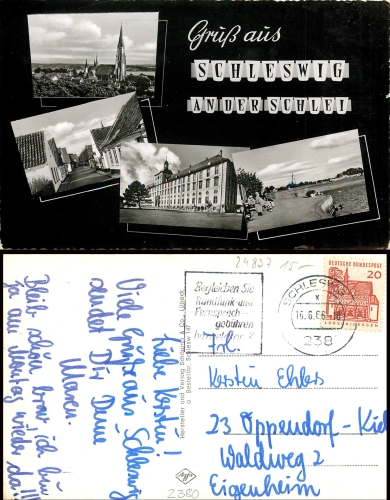 Gruß aus
SCHLESWIG
AN DER SCHLEI
24837 15.-
Begleichen Sie
Rundfunk- und
Fernsprech-
gebühren
SCHLESWIG
16.6.66
238
DEUTSCHE BUNDESPOST
20
Liebe Kerstin!
Viele Grüße aus Schleswig
sendet Dir Deine
Maren.
Bleib schön brav, ich bin
ja am Montag wieder da!!!
Hersteller und Verlag Schöning & Co., Lübeck
Bestellnr. Schlesw 147
Agfa
2380
Frl.
Kerstin Ehlers
23 Oppendorf-Kiel
Waldweg 2
Eigenheim